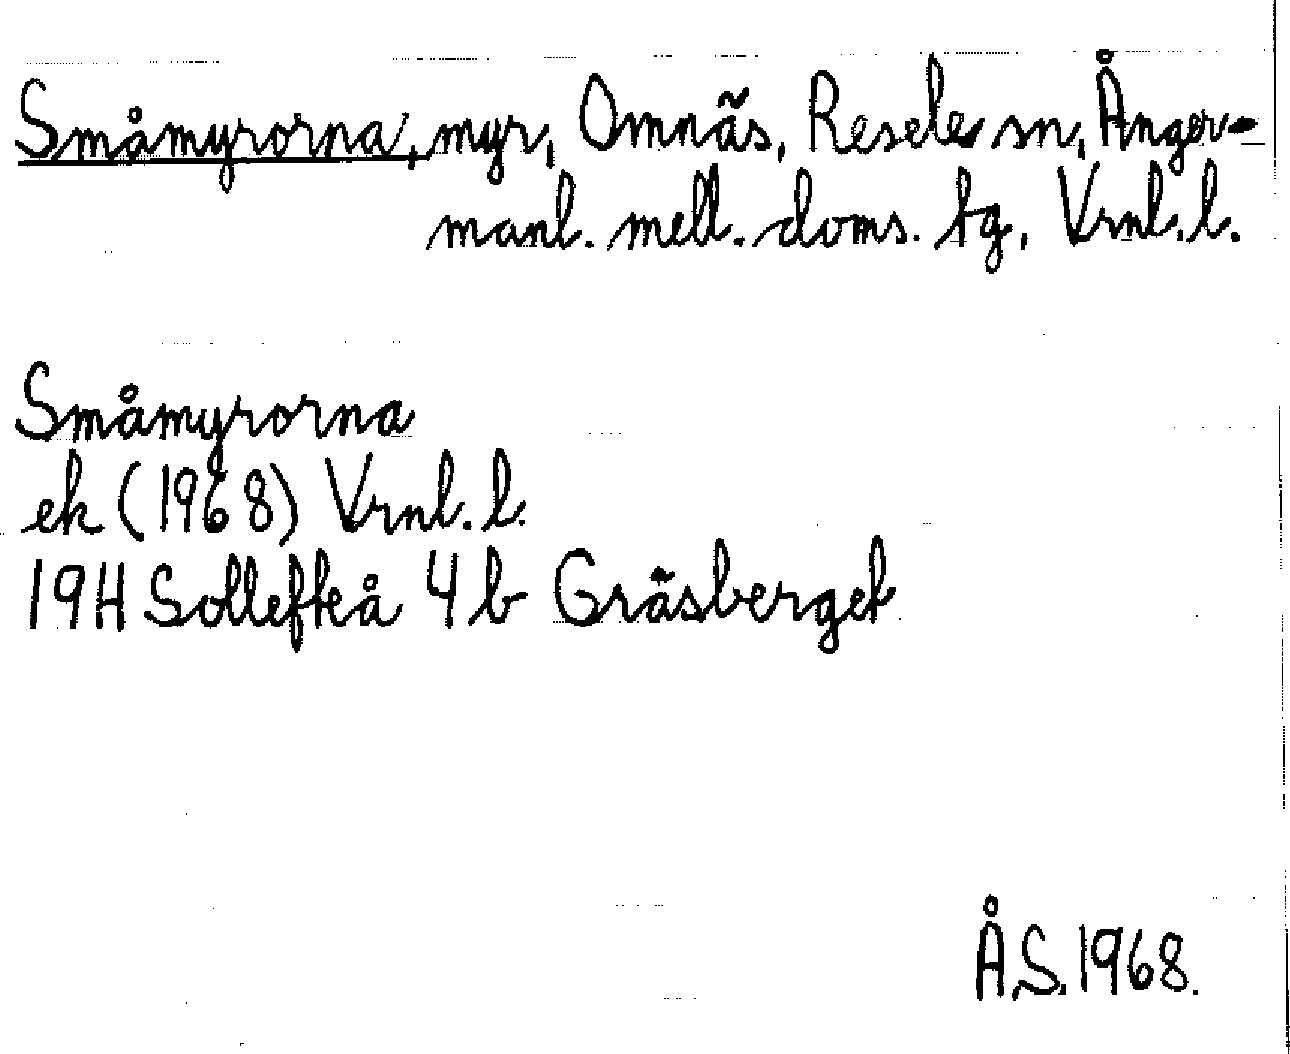 Småmyrorna, myr, Omnäs, Resele sn, Ånger-
manl. mell. doms. tg, Vrnl. l.
Småmyrorna
ek (1968) Vrnl. l.
19H Sollefteå 4b Gräsberget
Å.S. 1968.